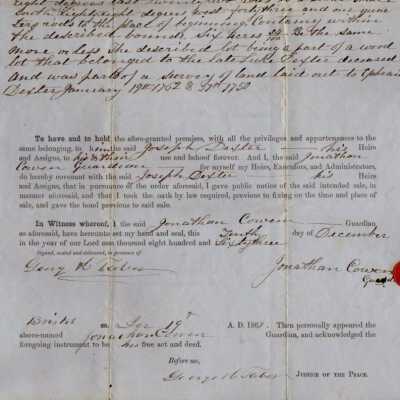 the described bounds Six acres be the same
more or less the described lot being a part of a wood
lot that belonged to the late Luke Dexter deceased
and was part of a survey of land laid out to Ephraim
Dexter January 19th 1752
To have and to hold, the afore-granted premises, with all the privileges and appurtenances to the
same belonging, to him the said Joseph Dexter his Heirs
and Assigns, to use and behoof forever. And I, the said Jonathan
Cowen Guardian for myself my Heirs, Executors, and Administrators,
do hereby covenant with the said Joseph Dexter his Heirs
and Assigns, that in pursuance of the order aforesaid, I gave public notice of the said intended sale, in
manner aforesaid, and that I took the oath by law required, previous to fixing on the time and place of
sale, and gave the bond previous to said sale.
In Witness whereof, I the said Jonathan Cowen Guardian
as aforesaid, have hereunto set my hand and seal, this Tenth day of December
in the year of our Lord one thousand eight hundred and Sixty three
Signed, sealed and delivered, in presence of
Jonathan Cowen
Bristol ss.
A. D. 186 Then personally appeared the
above-named Jonathan Cowen Guardian, and acknowledged the
foregoing instrument to be his free act and deed.
Before me,
JUSTICE OF THE PEACE.